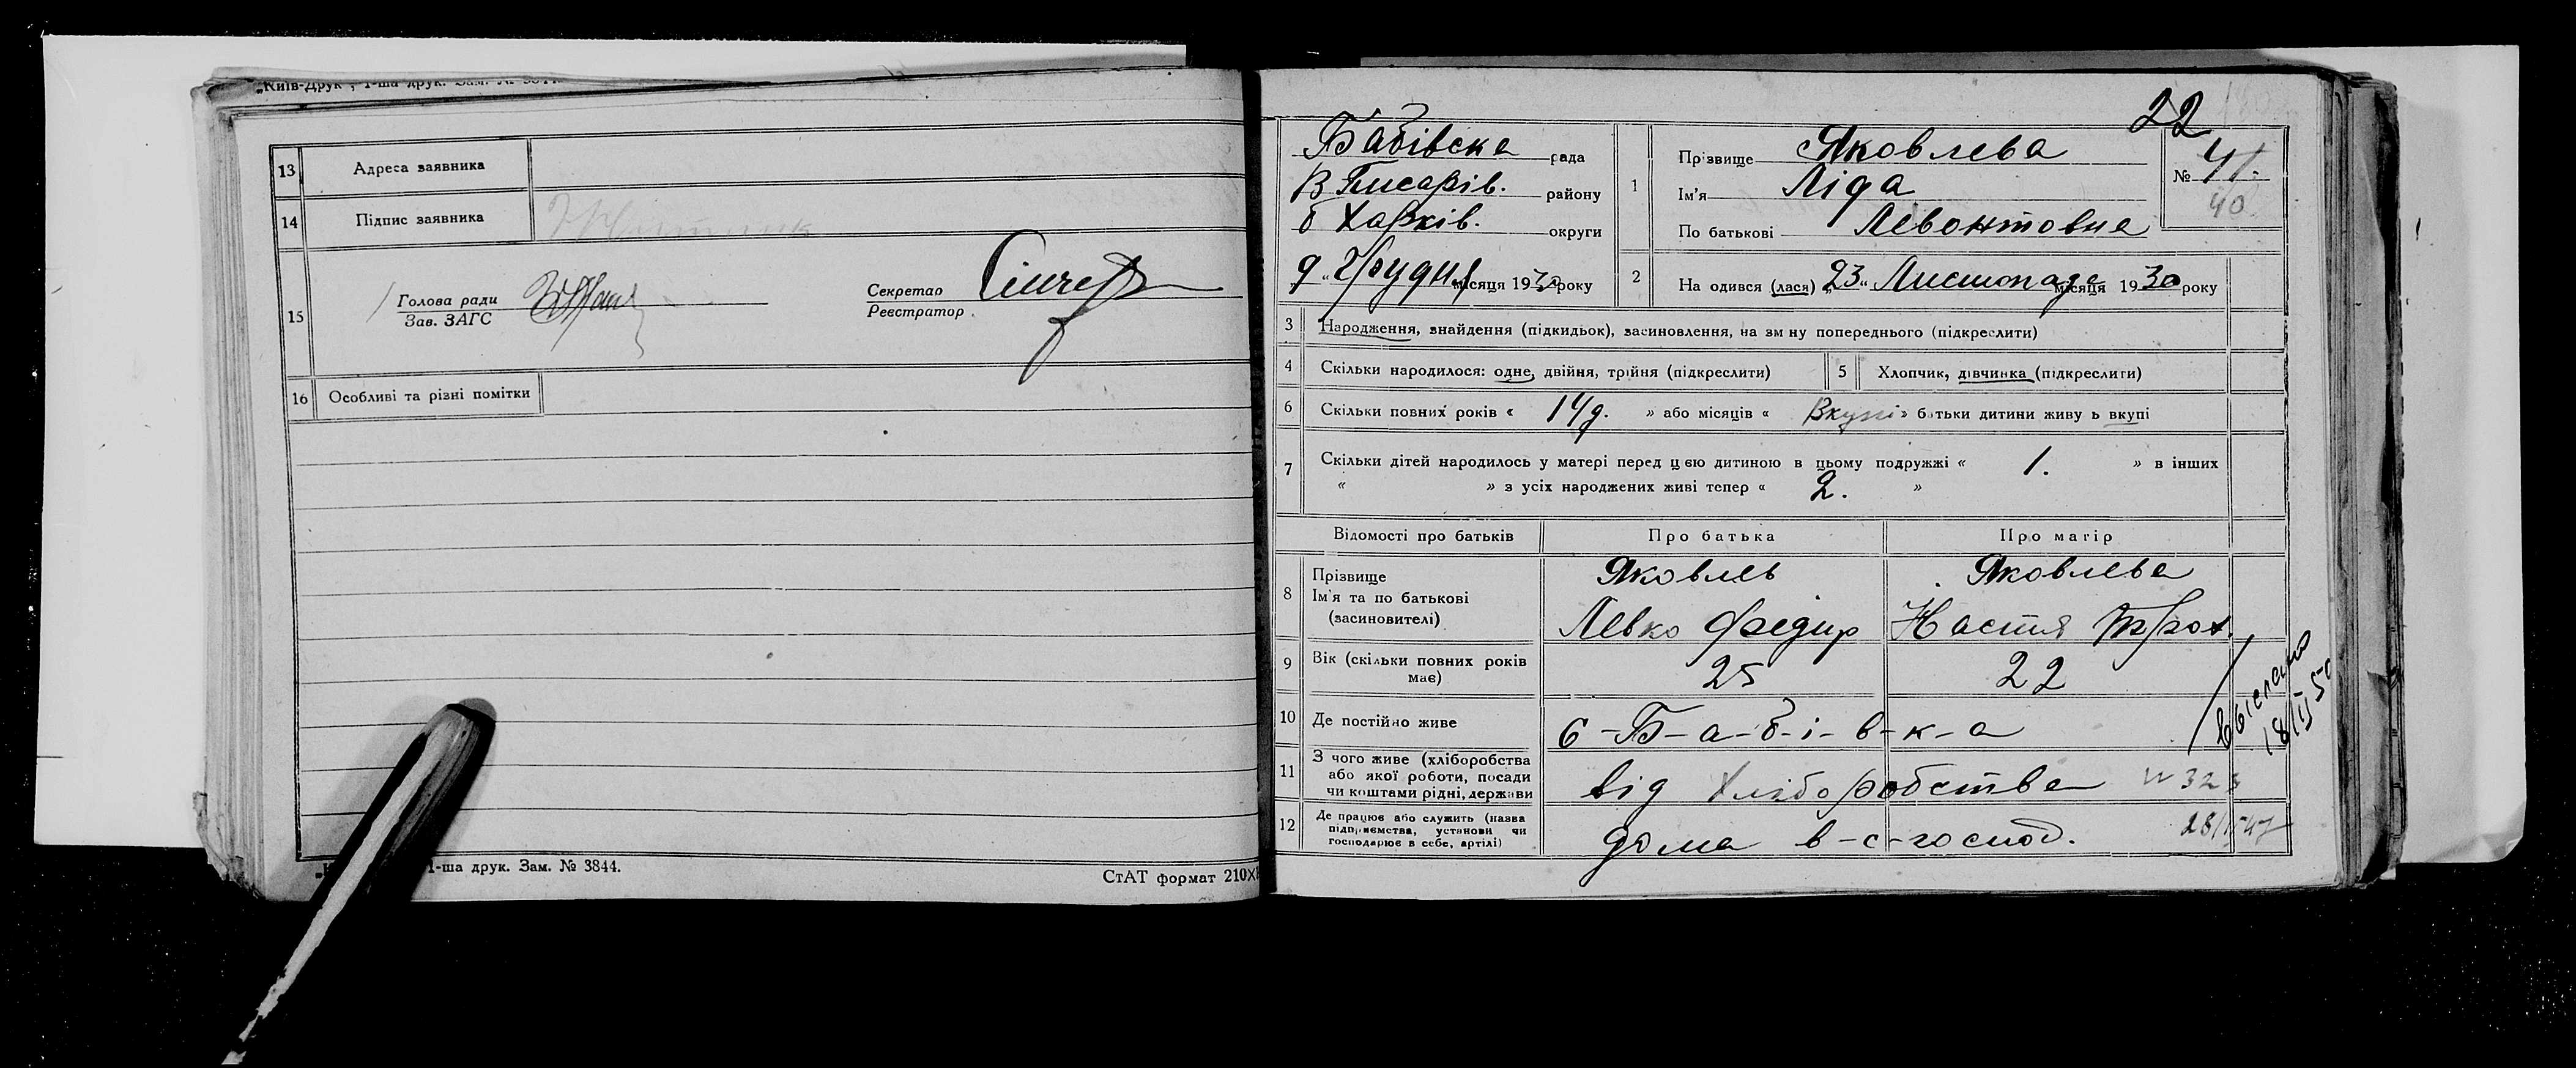 „Київ-Друк", 1-ша друк. Зам. № 3844.
13 Адреса заявника
14 Підпис заявника
15 Голова ради
Зав. ЗАГС
Секретар
Реєстратор
16 Особливі та різні помітки
1-ша друк. Зам. № 3844.
СтАТ формат 210X
22
Бабівська рада
В Писарів. району
б Харків. округи
9 „ Грудня місяця 1930 року
1 Прізвище Яковлева
Ім'я Ліда
По батькові Левонтовна
№ 41.
40
2 На одився (лася) „23" Листопада місяця 1930 року
3 Народження, знайдення (підкидьок), засиновлення, на зм ну попереднього (підкреслити)
4 Скільки народилося: одне, двійня, трійня (підкреслити)
5 Хлопчик, дівчинка (підкреслити)
6 Скільки повних років « 1 Ч д. » або місяців « Вкупі » батьки дитини живу ь вкупі
7 Скільки дітей народилось у матері перед цією дитиною в цьому подружжі « 1. » в інших
« » з усіх народжених живі тепер « 2. »
Відомості про батьків Про батька Про матір
8 Прізвище
Ім'я та по батькові
(засиновителі)
Яковлев Яковлева
Левко Федир Настя Трох.
9 Вік (скільки повних років
має)
25 22
10 Де постійно живе с-Б-а-б-і-в-к-а
11 З чого живе (хліборобства
або якої роботи, посади
чи коштами рідні, держави
від хліборобства
12 Де працює або служить (назва
підприємства, установи чи
господарює в себе, артілі)
дома в-с-господ.
выслано
18/II 50
28/II 47